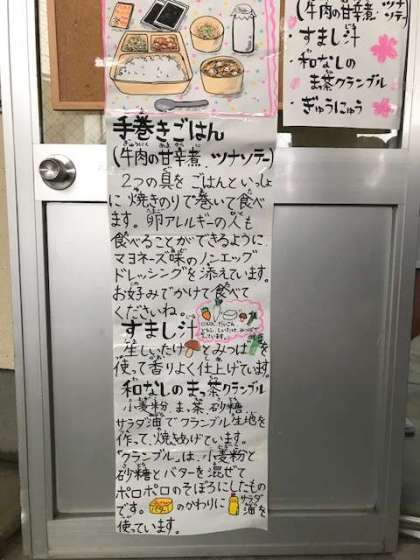 (牛肉の甘辛煮
ツナソテー)
・すまし汁
・和なしの
まっ茶クランブル
・ぎゅうにゅう
手巻きごはん
(牛肉の甘辛煮、ツナソテー)
2つの具をごはんといっしょ
に焼きのりで巻いて食べ
ます。卵アレルギーの人も
食べることができるように、
マヨネーズ味のノンエッグ
ドレッシングを添えています。
お好みでかけて食べて
くださいね。
すまし汁
生しいたけとみつばを
使って香りよく仕上げています。
和なしのまっ茶クランブル
小麦粉、まっ茶、砂糖、
サラダ油でクランブル生地を
作って、焼きあげています。
「クランブル」は、小麦粉と
砂糖とバターを混ぜて
ポロポロのそぼろにしたもの
です。のかわりにサラダ油を
使っています。